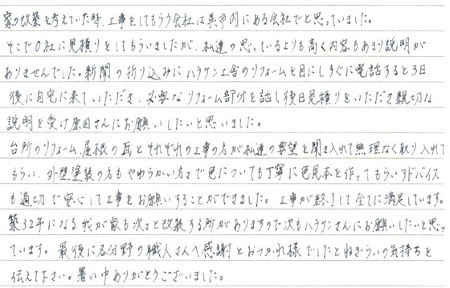 家の改築を考えていた時、工事をしてもらう会社は呉市内にある会社でと思っていました。
そこで0社に見積りをしてもらいましたが、私達の思っているよりも高く内容もあまり説明が
ありませんでした。新聞の折り込みにハラケン工舎のリフォームを目にしすぐに電話すると3日
後に自宅に来ていただき、必要なリフォーム部分を話し後日見積りをいただき親切な
説明を受け原田さんにお願いしたいと思いました。
台所のリフォーム、屋根の瓦とそれぞれの工事の方が私達の要望を聞き入れて無理なく取り入れて
もらい、外壁塗装の方もやわらかい方で色についても丁寧に色見本を作ってもらいアドバイス
も適切で安心して工事をお願いすることができました。工事が終了して全てに満足しています。
築32年になる我が家も次々と改装する所がありますので次もハラケンさんにお願いしたいと思っ
ています。最後に各分野の職人さんへ感謝とおつかれ様でしたとねぎらいの気持ちを
伝えて下さい。暑い中ありがとうございました。